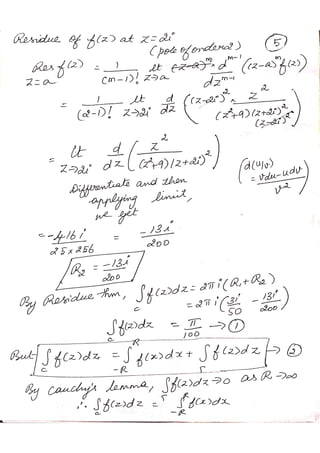 Residue of f(z) at z=2i
(pole of order 2)
5
Res f(z) = 1/(m-1)! lt z→a d^(m-1)/dz^(m-1) ((z-a)^m f(z))
z=a
= 1/(2-1)! lt z→2i d/dz ((z-2i)^2 × z^2/((z^2+9)(z+2i)^2 (z-2i)^2))
= lt z→2i d/dz (z^2/((z^2+9)(z+2i)^2))
(d(u/v) = vdu-udv/v^2)
Differentiate and then
applying limit,
we get
= -416i/25×256 = -13i/200
R2 = -13i/200
By Residue thm, ∫c f(z)dz = 2πi(R1+R2)
= 2πi(3i/50 - 13i/200)
∫c f(z)dz = π/100 → 1
But ∫c f(z)dz = ∫-R^R f(x)dx + ∫Γ f(z)dz → 2
By Cauchy's lemma, ∫Γ f(z)dz→0 as R→∞
∴ ∫c f(z)dz = ∫-R f(x)dx